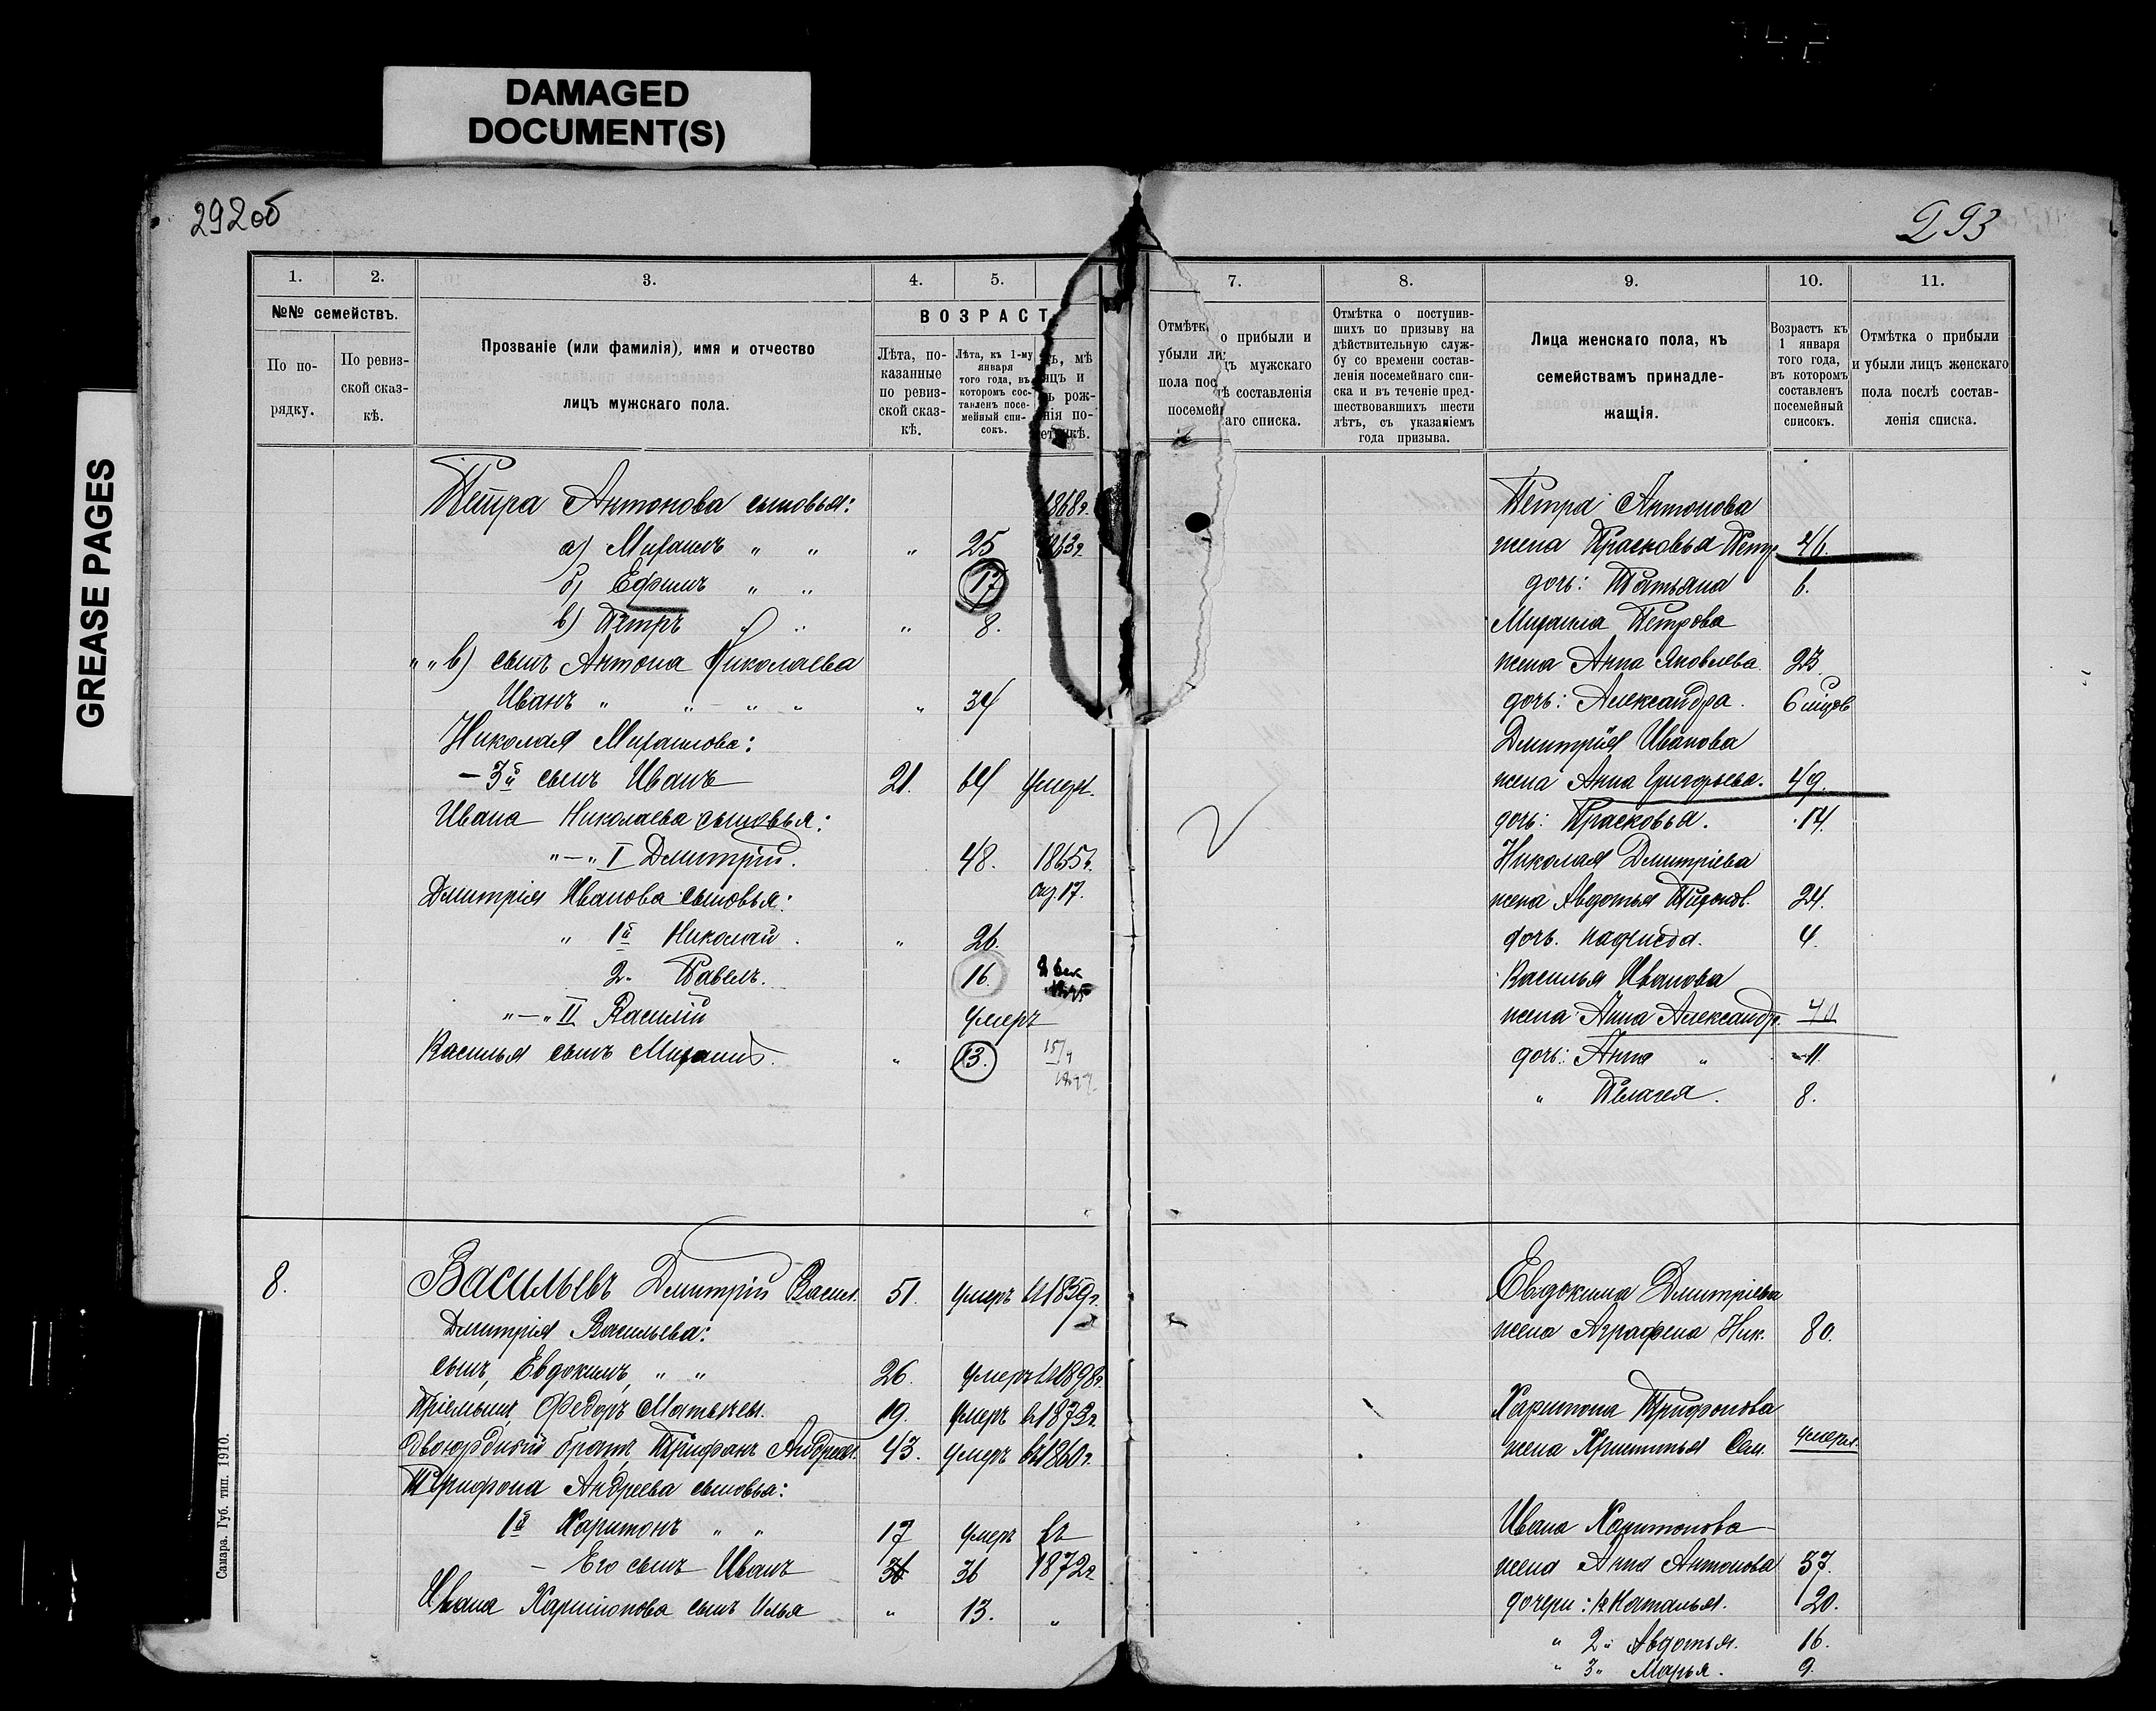 DAMAGED
DOCUMENT(S)
GREASE PAGES
292об
293
1. 2. 3. 4. 5.
№№ семействъ.
По по-
рядку.
По ревиз-
ской сказ-
кѣ.
Прозваніе (или фамилія), имя и отчество
лицъ мужскаго пола.
ВОЗРАСТ
Лѣта, по-
казанные
по ревиз-
ской сказ-
кѣ.
Лѣта, къ 1-му
января
того года, въ
которомъ сос-
тавленъ посе-
мейный спи-
сокъ.
Петра Антонова сыновья: 1868г.
а) Михаилъ " " " 25
б) Ефимъ " " 17
в) Петръ " " " 8.
" " в) сынъ Антона Николаева
Иванъ " " " " " 34
Николая Михаилова:
- 3й сынъ Иванъ 21. 64
Ивана Николаева сыновья:
"—" I Дмитрій. 48. 1865г.
17.
Дмитрія Иванова сыновья:
" 1й Николай. " 26.
2. Павелъ. 16.
"—" II Василій умеръ
Василья сынъ Михаилъ. " 13. 15/9
8. Васильевъ Дмитрій Васил. 51. умеръ в1859г.
Дмитрія Васильева:
сынъ, Евдокимъ, " " 26. умеръ в1898г.
Пріемышъ, Федоръ Матвѣев. 19. умеръ в1873г.
двоюрдный братъ, Трифонъ Андреев. 43. умеръ в1860г.
Трифона Андреева сыновья:
1й Харитонъ " " 17 умеръ въ
- Его сынъ Иванъ 36 36 1872г
Ивана Харитонова сынъ Илья " 13. "
Самара. Губ. тип. 1910.
7. 8. 9. 10. 11.
Отмѣтка о прибыли и
убыли лицъ мужскаго
пола послѣ составленія
посемейнаго списка.
Отмѣтка о поступив-
шихъ по призыву на
дѣйствительную служ-
бу со времени состав-
ленія посемейнаго спи-
ска и въ теченіе пред-
шествовавшихъ шести
лѣтъ, съ указаніемъ
года призыва.
Лица женскаго пола, къ
семействамъ принадле-
жащія.
Возрастъ къ
1 января
того года,
въ которомъ
составленъ
посемейный
списокъ.
Отмѣтка о прибыли
и убыли лицъ женскаго
пола послѣ состав-
ленія списка.
Петра Антонова
жена Прасковья Петр. 46.
дочь: Татьяна 6.
Михаила Петрова
жена Анна Яковлева. 23.
дочь: Александра. 6 мѣсяцов
Дмитрія Иванова
жена Анна Григорьева. 49.
дочь: Прасковья. 14.
Николая Дмитріева
жена Авдотья 24.
дочь. 4.
Василья Иванова
жена Анна Александр. 40
дочь: Анна " 11.
" Пелагея. 8.
Евдокима Дмитріева
жена Аграфена Ник. 80.
Харитона Трифонова
жена Христинья Сем. умерла.
Ивана Харитонова
жена Анна Антонова 37.
дочери: 1я Наталья. 20.
" 2" Авдотья. 16.
" 3" Марья. 9.